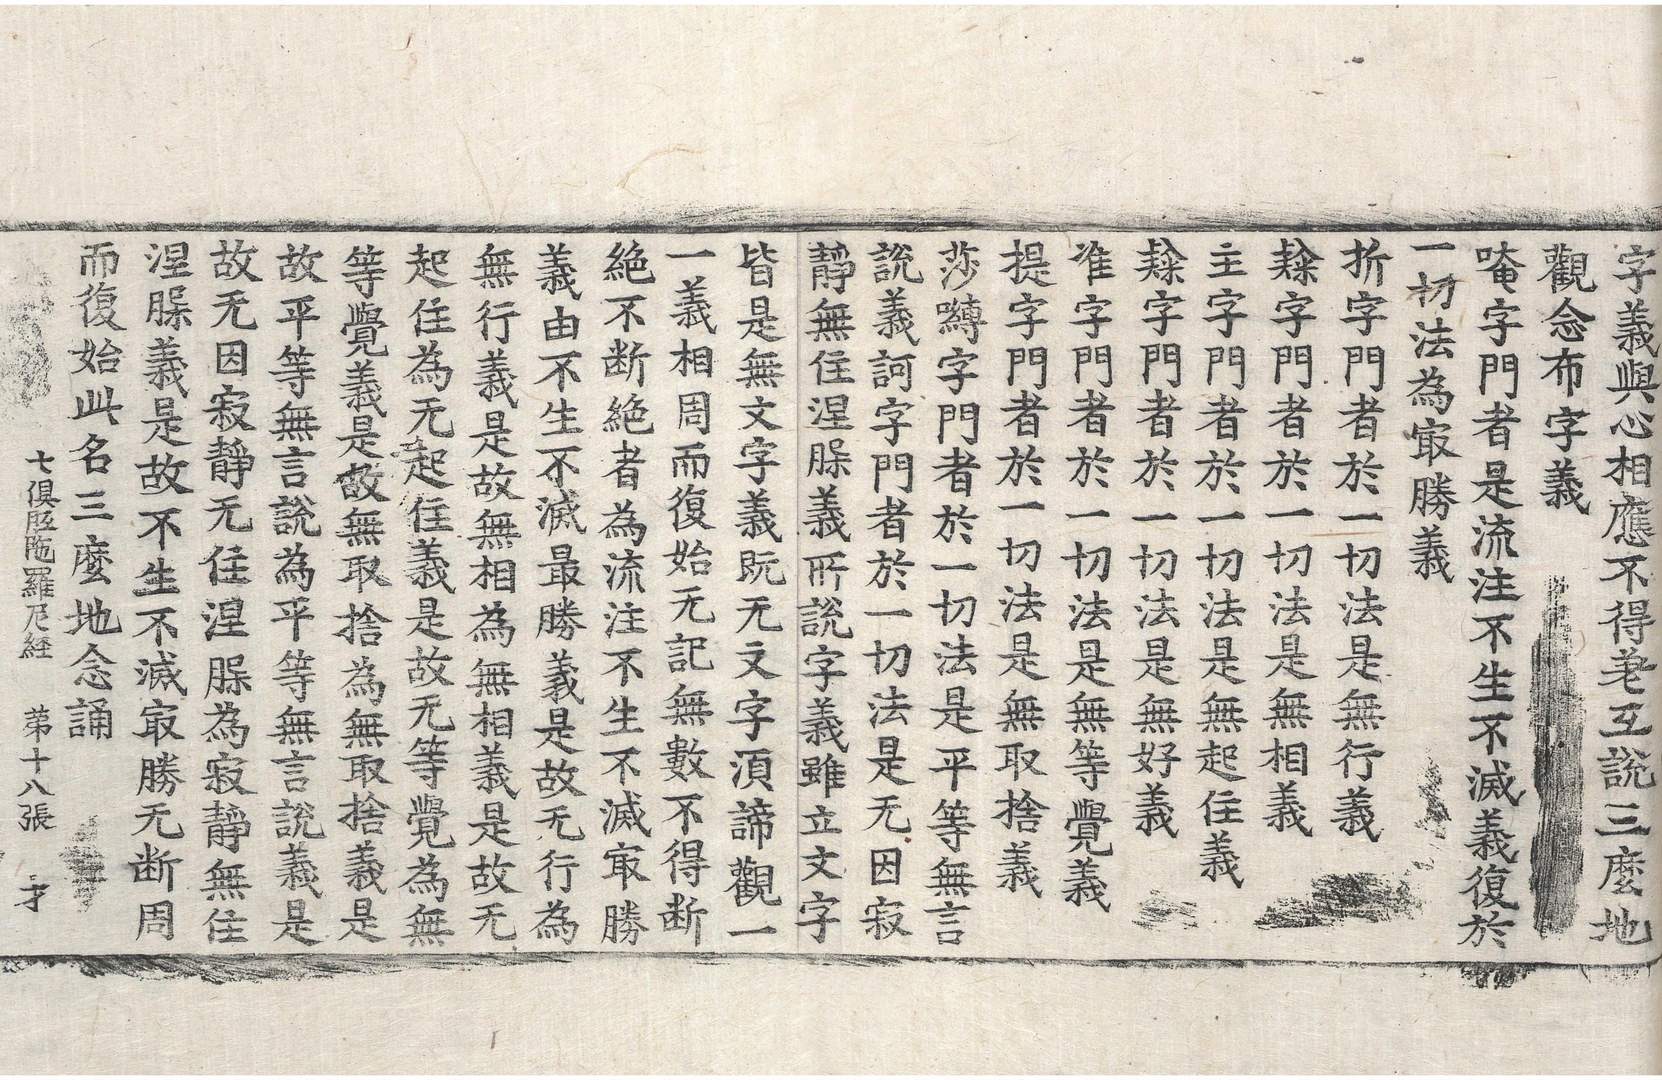 字義與心相應不得差互說三麼地
觀念布字義
唵字門者是流注不生不滅義復於
一切法為㝡勝義
折字門者於一切法是無行義
隸字門者於一切法是無相義
主字門者於一切法是無起住義
隸字門者於一切法是無好義
准字門者於一切法是無等覺義
提字門者於一切法是無取捨義
莎嚩字門者於一切法是平等無言
說義訶字門者於一切法是无因寂
靜無住涅槃義所說字義雖立文字
皆是無文字義既无文字湏諦觀一
一義相周而復始无記無數不得断
絶不断絶者為流注不生不滅㝡勝
義由不生不滅最勝義是故无行為
無行義是故無相為無相義是故无
起住為无起住義是故无等覺為無
等覺義是故無取捨為無取捨義是
故平等無言說為平等無言說義是
故无因寂靜无住涅槃為寂靜無住
涅槃義是故不生不滅㝡勝无断周
而復始此名三麼地念誦
七俱胝陁羅尼経 苐十八張 才